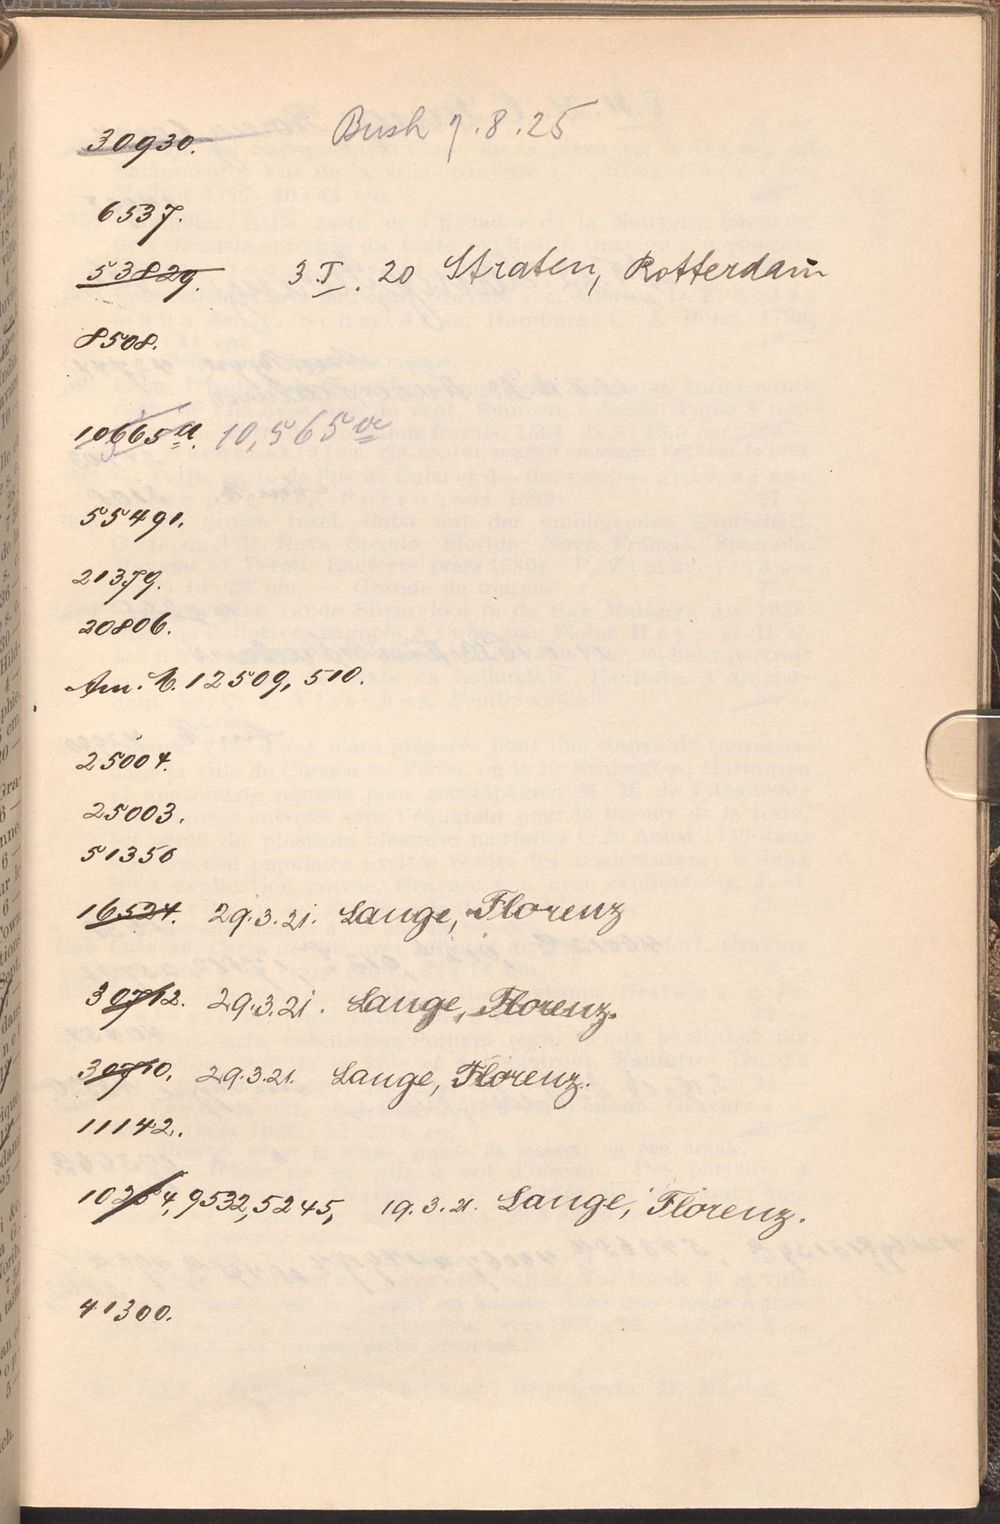 30930. Bush 7.8.25
6537.
53829. 3 I. 20 Straten, Rotterdam
8508.
10665a. 10,565a
55491.
21379.
20806.
Am. 6. 12509, 510.
25004.
25003.
51350
16524. 29.3.21. Lange, Florenz
30712. 29.3.21. Lange, Florenz.
30710. 29.3.21. Lange, Florenz.
11142.
10254, 9532, 5245, 19.3.21. Lange, Florenz.
41300.